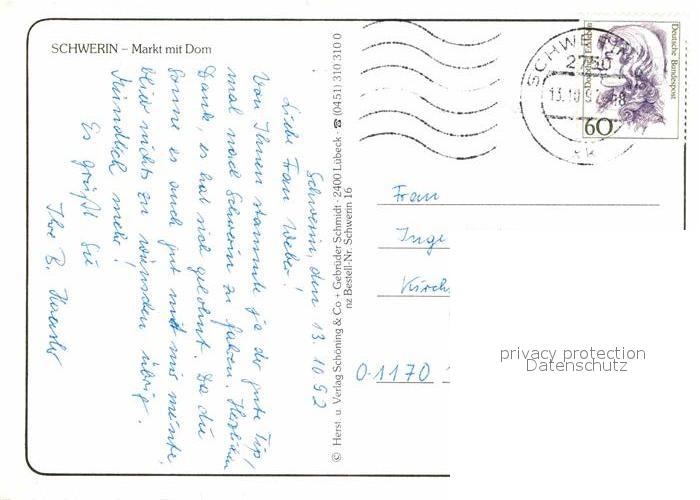 SCHWERIN – Markt mit Dom
Schwerin, den 13.10.92
Liebe Frau Weber!
Von Ihnen stammte ja der gute Tip,
mal nach Schwerin zu fahren. Herzlichen
Dank, es hat sich gelohnt. Da die
Sonne es auch gut mit mir meinte,
blieb nichts zu wünschen übrig.
Mündlich mehr!
Es grüßt Sie
Ihre B.
© Herst. u. Verlag Schöning & Co + Gebrüder Schmidt · 2400 Lübeck · ☎ (0451) 310 310 0
nz Bestell-Nr. Schwerin 16
SCHWERIN
2750
13.10.9
Deutsche Bundespost
60
Frau
Inge
Kirch
O-1170
privacy protection
Datenschutz